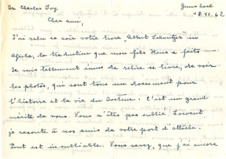 Dr Charles Joy
Gunsbach
Cher ami,
J'ai relu ce soir votre livre Albert Schweitzer en
Afrika, la traduction que mon feu Hans a faite
Je suis tellement émue de relire ce livre, de voir
les photos, qui sont tous un document pour
l'histoire et la vie du docteur. C'est un grand
mérite de vous. Vous n'êtes pas oublié. Souvent
je raconte à nos amis de votre port d'attache.
Tout est inoubliable. Vous savez, que j'ai encore